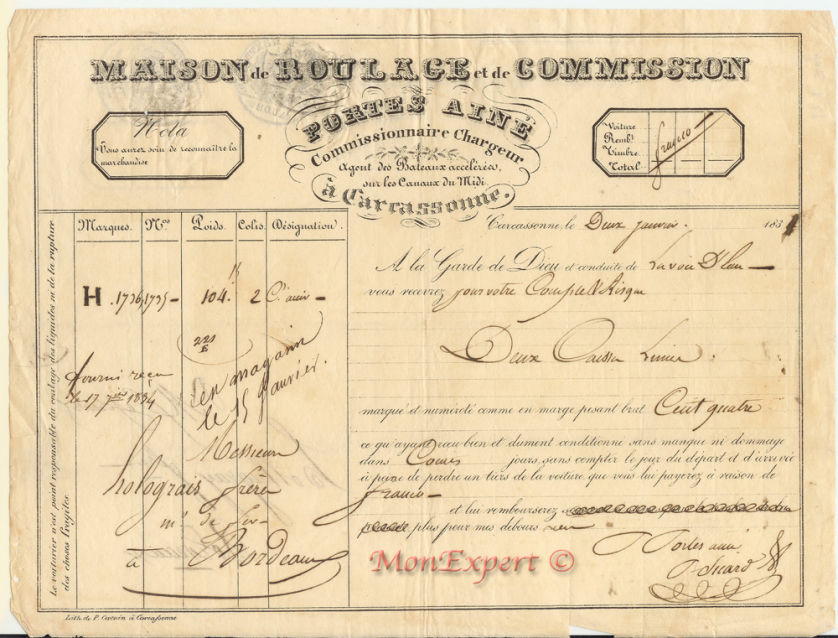 MAISON de ROULAGE et de COMMISSION
PORTES AINÉ
Commissionnaire Chargeur
Agent des Bateaux accélérés,
sur les Canaux du Midi
à Carcassonne.
Nota
Vous aurez soin de reconnaître la
marchandise
Voiture
Remb.t
Timbre
Total
franco
Carcassonne, le Deux janvier. 1834
Marques. N.os Poids. Colis. Désignation.
H . 1736, 1735 - 104. 2
en magasin
le 15 janvier.
fourni recu
le 17
1834
Messieurs
frères
à Bordeaux
Le voiturier n'est point responsable du coulage des liquides ni de la rupture
des choses fragiles.
A la Garde de Dieu et conduite de
vous recevrez pour votre Compte & Risque
Deux Caisses
marqué et numéroté comme en marge pesant brut Cent quatre
ce qu'ayant reçu bien et dument conditionné sans manque ni dommage
dans jours, sans compter le jour du départ et d'arrivée
à peine de perdre un tiers de la voiture que vous lui payerez à raison de
franco
et lui rembourserez
plus pour mes débours rien
Portes ainé
MonExpert ©
Lith. de P. Carcassonne